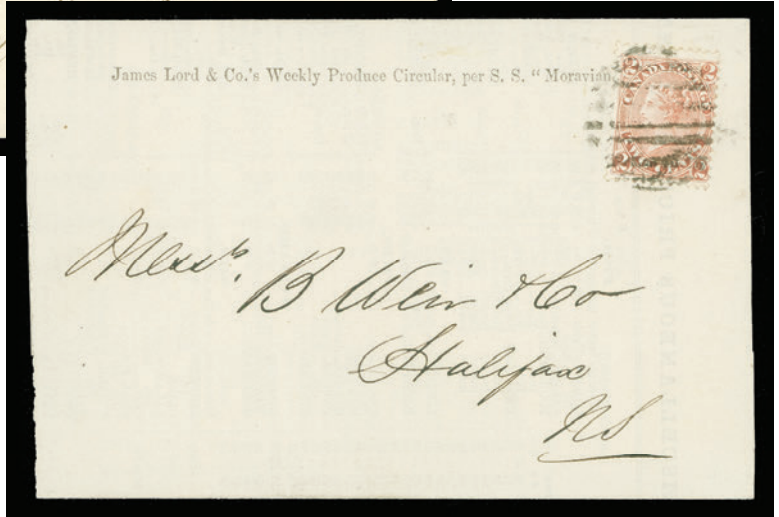 James Lord & Co.'s Weekly Produce Circular, per S. S. "Moravian
2 2
CANADA POSTAGE
2 2
Messrs. B Weir & Co
Halifax
NS